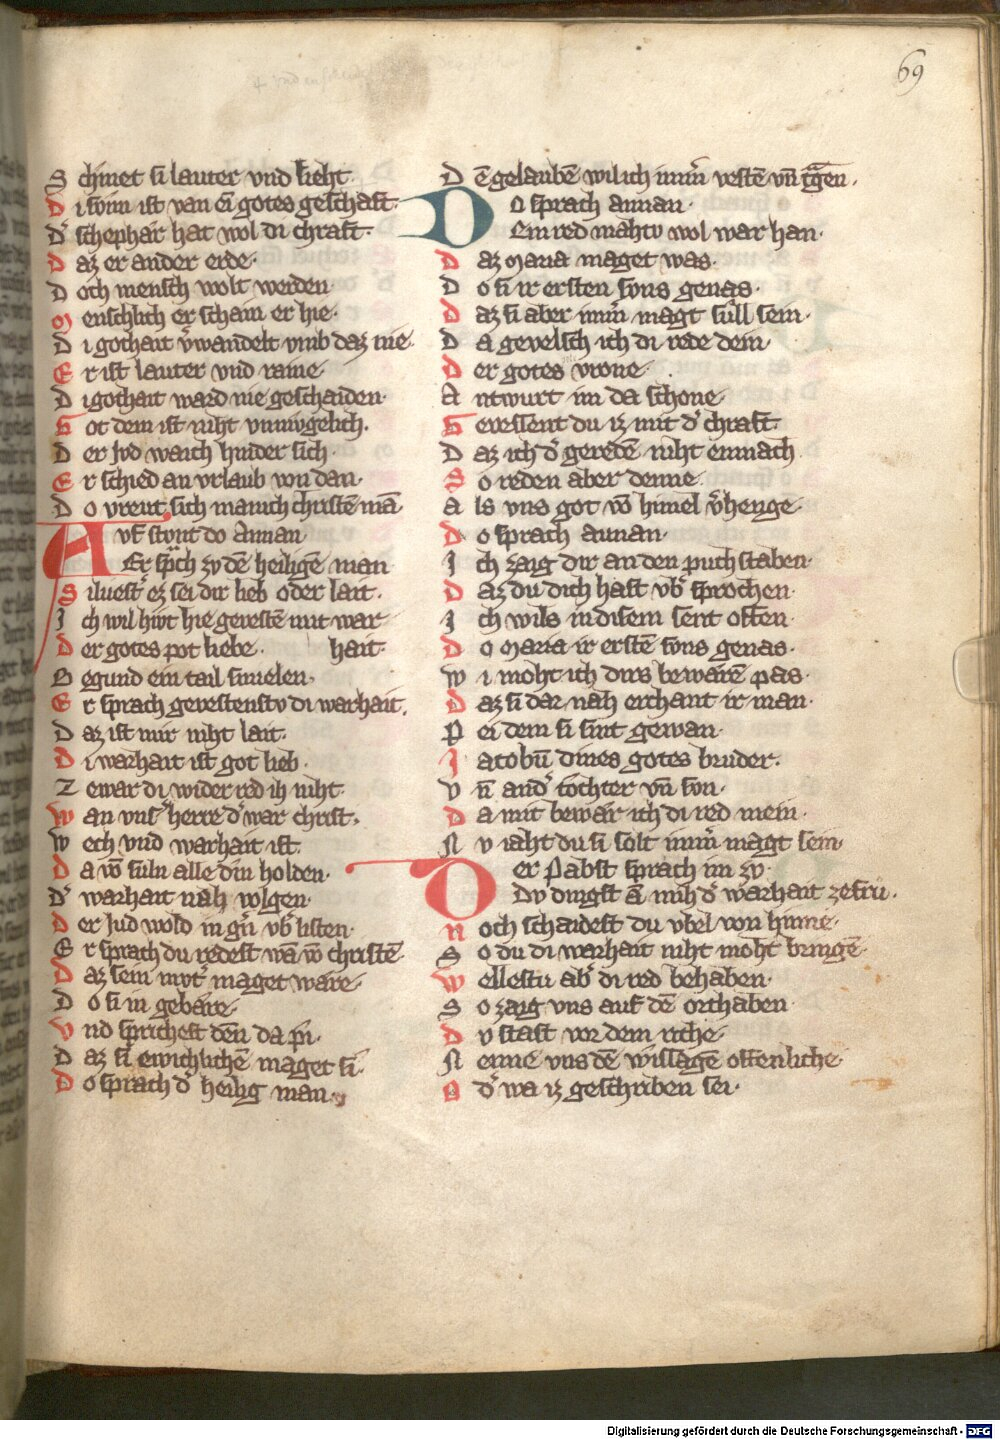 69
S chinet si lauter vnd lieht.
D i sunn ist van eī gotes geschaft
D' schephar hat wol di chraft.
D az er ander erde.
D och mensch wolt werden
M enschlich er schain er hie.
D i gothait v'wandelt vmb daz nie
E r ist lauter vnd raine
D i gothait ward nie geschaiden.
G ot dem ist niht vnmvgelich.
D er Jvd waich hinder sich.
E r schied an vrlaub von dan.
D o vreut sich manich christē mā
A vf stvnt do Annan
Er sp̄ch zv dē heiligē man
S iluest' ez sei dir lieb oder lait.
I ch wil hivt hie gevestē mit war
D er gotes pot liebe. hait.
B egund ein tail smielen.
E r sprach gevestenstv di warhait.
D az ist mir niht lait.
D i warhait ist got lieb.
Z ewar di wider red ih niht.
W an vns' herre d' war christ.
W ech vnd warhait ist.
D a w̄ suln alle din holden.
D' warhait nah volgen.
D er Jud wold in gn̄ vb' listen.
E r sprach du redest wā w̄ christē
D az sein mvt' maget ware
D o si in gebare.
V nd sprichest deñ da p̄i
D az si ewichlichē maget si.
D o sprach d' heilig man.
D ē gelaubē wil ich imm' vestē vn̄ tḡen.
D O sprach annan.
Ein red mahtv wol war han.
D az Maria maget was.
D o si ir ersten svns genas.
D az si aber imm' magt sůll sein.
D a gevelsch ich di rede dein
D er gotes vrone
A ntwurt im da schone.
G evestent du iz mit d' chraft.
D az ich d' geredē niht enmach
S o reden aber denne.
A ls vns got vō himel v'henge.
D o sprach annan.
I ch zaig dir an den puchstaben.
D az du dich hast vb' sprochen.
I ch wils in disem sent offen.
D o Maria ir erstē svns genas.
W i moht ich dirs bewarē pas.
D az si dar nah erchant ir man.
P ei dem si sint gewan.
I acobū dines gotes bruder.
V n̄ and' tochter vn̄ svn.
D a mit bewar ich di red mein.
N v iaht du si solt imm' magt sein.
D er Pabst sprach im zv
Dv dingst ā mih d' warhait ze frů.
N och schaidest du vbel von hinne.
S o du di warhait niht moht bringē
W ellestu ab' di red behaben
S o zaig vns auf dē orthaben
D v stast vor dem riche
N enne vns dē wissagē offenliche.
O d' wa iz geschriben sei.
Digitalisierung gefördert durch die Deutsche Forschungsgemeinschaft - DFG